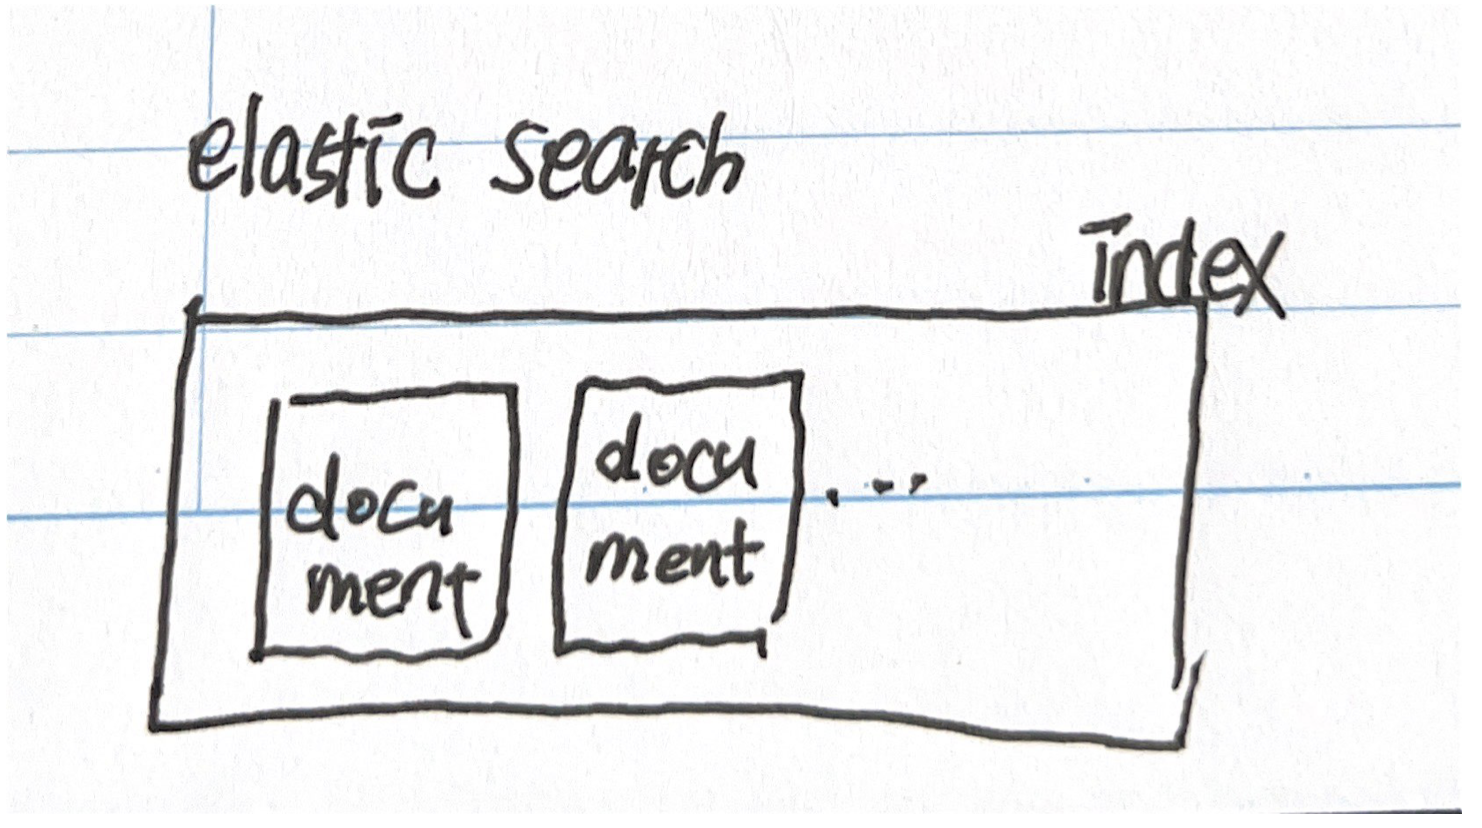 elastic search
index
docu
ment
docu
ment
...